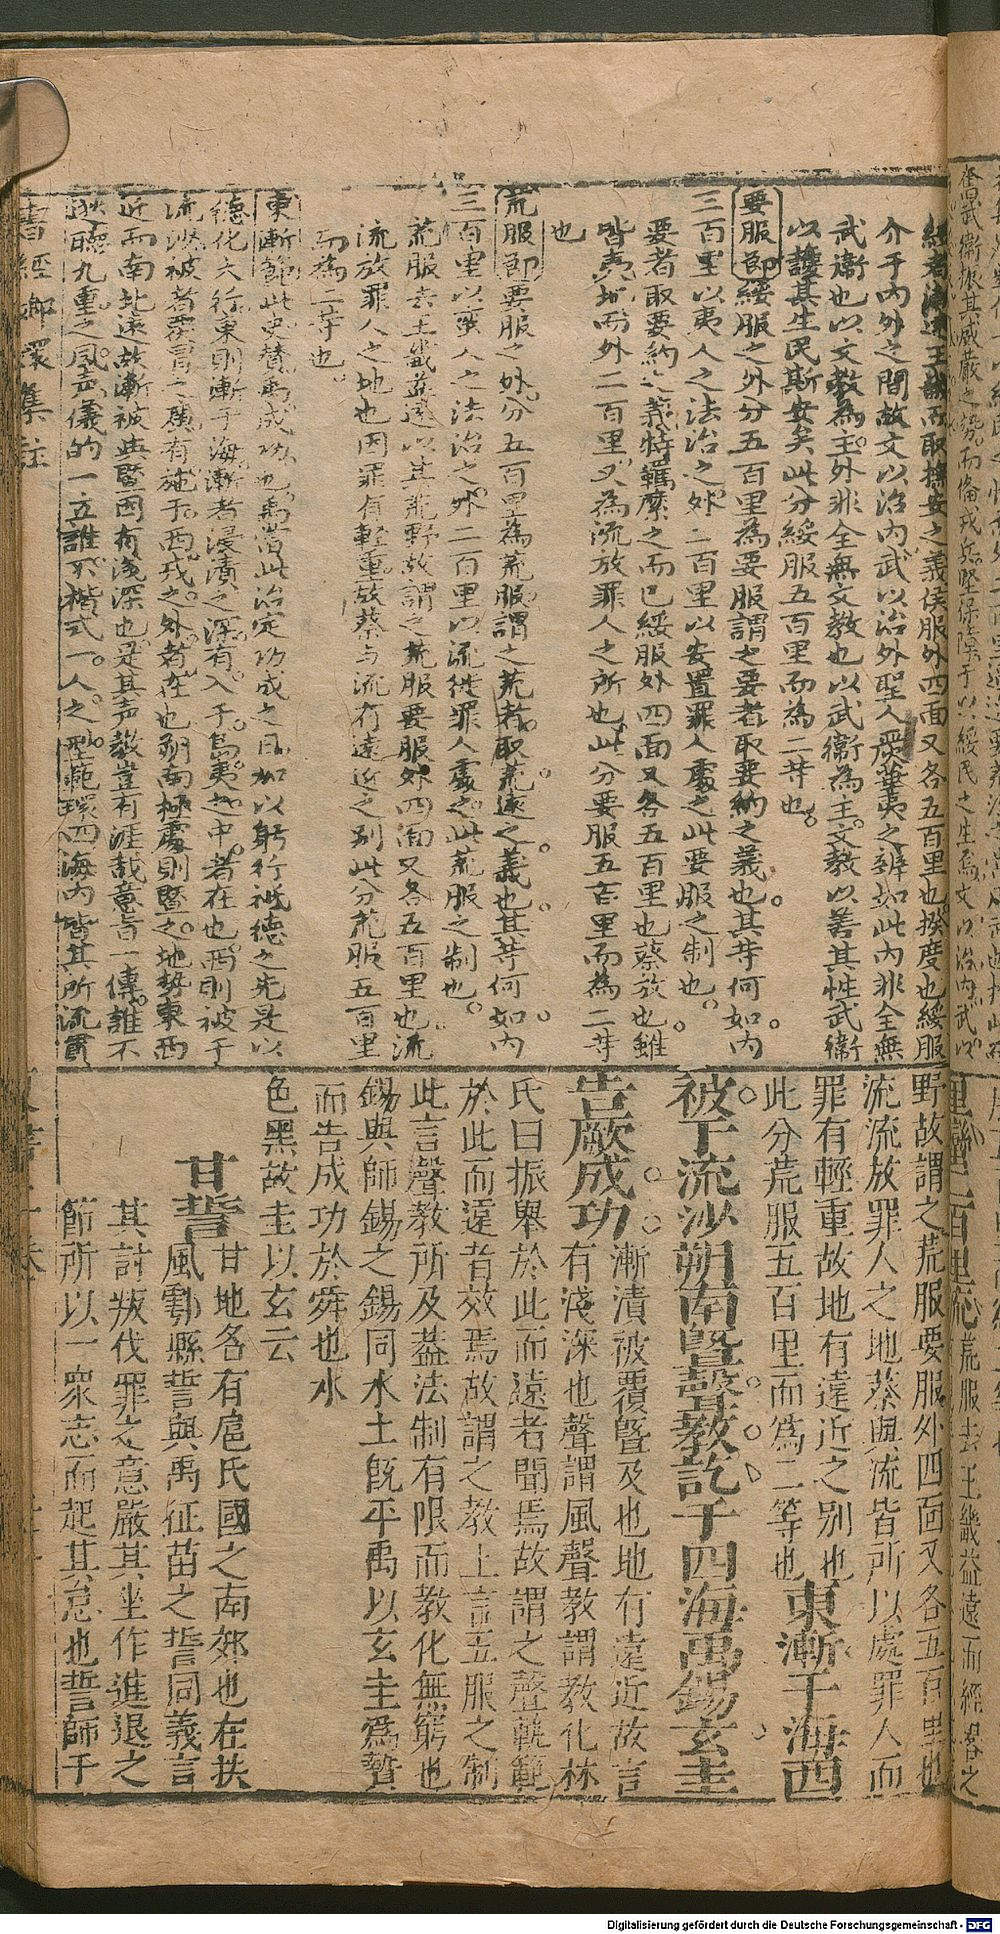 綏者漸遠王畿而取撫安之義侯服外四面又各五百里也揆度也綏服
介于內外之間故文以治內武以治外聖人嚴華夷之辨如此內非全無
武衛也以文教為主外非全無文教也以武衛為主文教以善其性武衛
以護其生民斯安矣此分綏服五百里而為二等也
要服節綏服之外分五百里為要服謂之要者取要約之義也其等何如內
三百里以夷人之法治之外二百里以安置罪人處之此要服之制也
要者取要約之義特羈縻之而已綏服外四面又各五百里也蔡放也雖
皆夷地而外二百里又為流放罪人之所也此分要服五百里而為二等
也
荒服節要服之外分五百里為荒服謂之荒者取荒遠之義也其等何如內
三百里以蛮人之法治之外二百里以流徙罪人處之此荒服之制也
荒服去王畿益遠以其荒野故謂之荒服要服外四面又各五百里也流
流放罪人之地也因罪有輕重故蔡与流有遠近之別此分荒服五百里
而為二等也
東漸節此史賛禹成功也禹當此治定功成之日加以躬行祇德之先是以
德化大行東則漸于海漸者浸漬之深有入于島夷之中者在也西則被于
流沙被者覆冒之廣有施于西戎之外者在也朔南極處則暨之地勢東西
近而南北遠故漸被與暨因有淺深也是其声教豈有涯哉意旨一傳誰不
聽九重之風声儀的一立誰不楷式一人之型範環四海內皆其所流貫
書經 集註
野故謂之荒服要服外四面又各五百里也
流流放罪人之地蔡與流皆所以處罪人而
罪有輕重故地有遠近之別也東漸于海西
此分荒服五百里而爲二等也
被于流沙朔南曁聲教訖于四海禹錫玄圭
告厥成功漸漬被覆曁及也地有遠近故言
有淺深也聲謂風聲教謂教化林
氏曰振舉於此而遠者聞焉故謂之聲軌範
於此而遠者效焉故謂之教上言五服之制
此言聲教所及葢法制有限而教化無窮也
錫與師錫之錫同水土旣平禹以玄圭爲贄
而告成功於舜也水
色黑故圭以玄云
甘誓甘地名有扈氏國之南郊也在扶
風鄠縣誓與禹征苗之誓同義言
其討叛伐罪之意嚴其坐作進退之
節所以一衆志而起其怠也誓師于
Digitalisierung gefördert durch die Deutsche Forschungsgemeinschaft - DFG